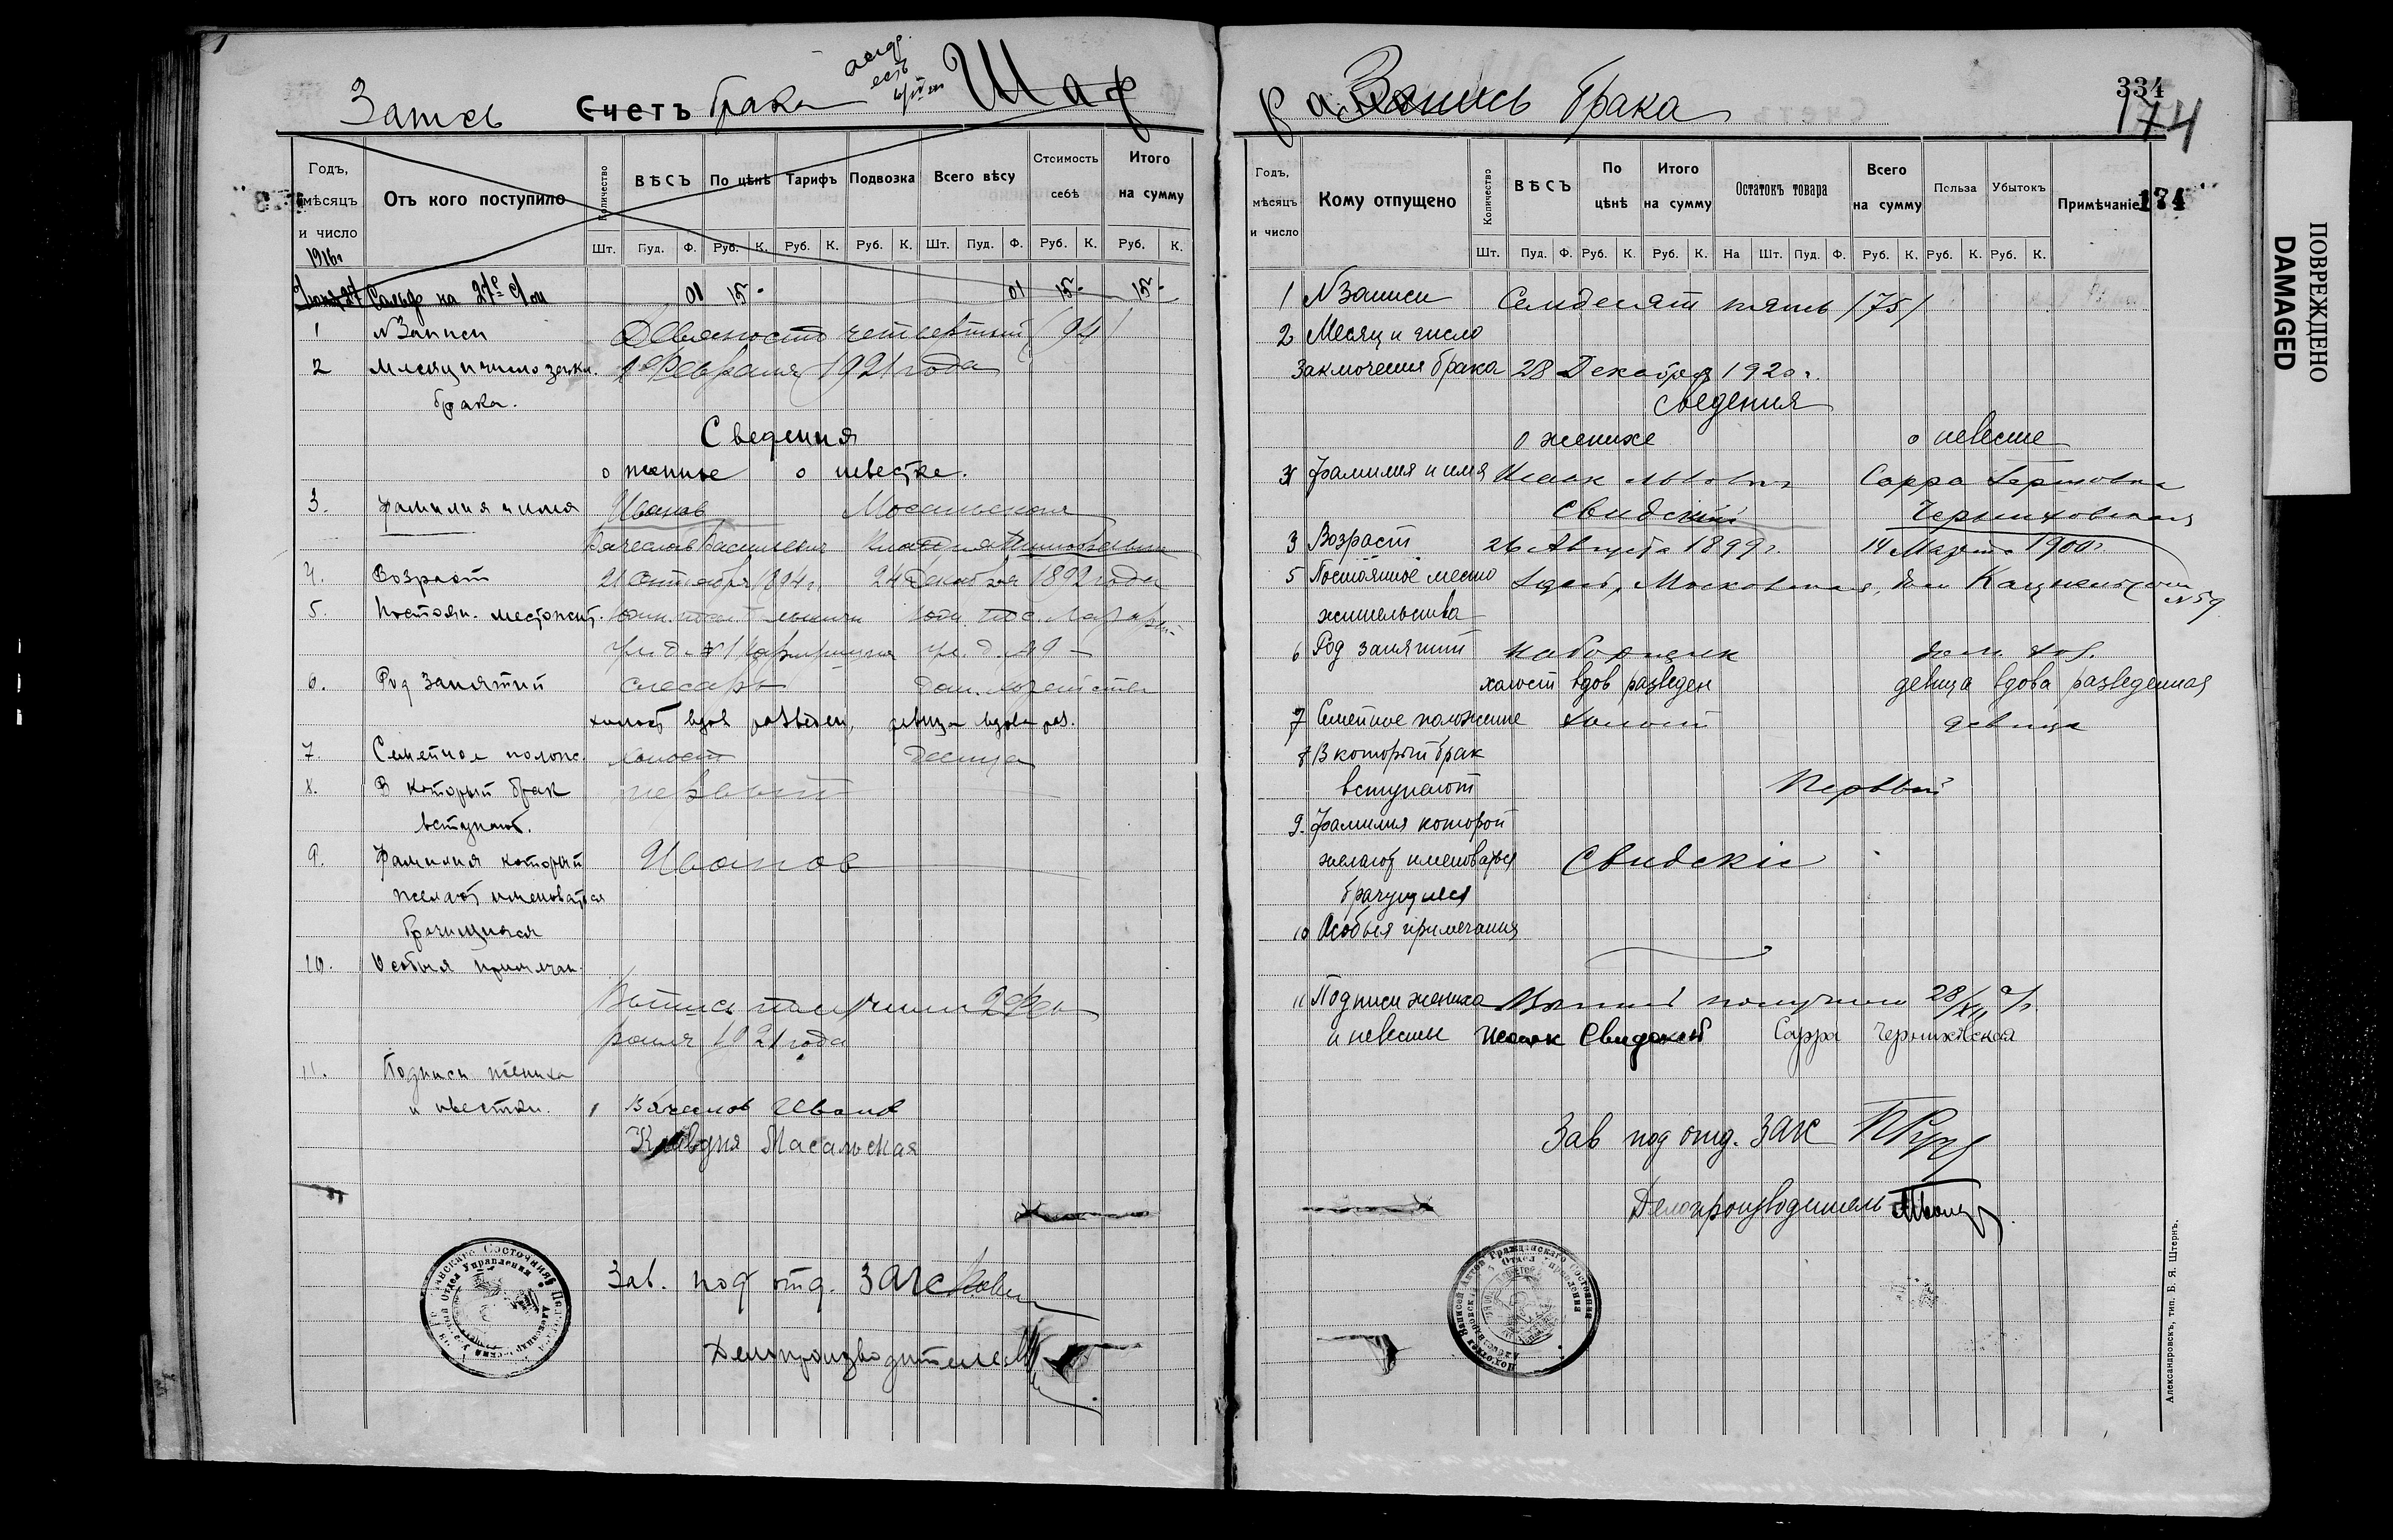 Запись Счетъ брака Шаф
Годъ, мѣсяцъ и число
Отъ кого поступило
Количество
ВѢСЪ
По цѣнѣ
Тарифъ
Подвозка
Всего вѣсу
Стоимость себѣ
Итого на сумму
Шт. Пуд. Ф. Руб. К. Руб. К. Руб. К. Шт. Пуд. Ф. Руб. К. Руб. К.
1916г
Сальдо на 27е 01 15- 01 15- 15-
1 N Записи Девяносто четвертый (94)
2 Месяц и число закл. 1 Февраля 1921 года
брака.
Сведения
о женихе о невестке.
3. Фамилия и имя Иванов Мосальская
Вячеслав Васильевич
4. Возраст 21 Сентября 1894г. 24 Декабря 1892 года
5. Постоян. местожит.
6. Род занятий слесарь дом. хозяйство
холост вдов разведен, девица вдова раз.
7. Семейное полож. холост девица
8. В который брак первый
вступают.
9. Фамилия который Иванов
желают именоваться
брачищиася
10. Особыя примечан.
Выпись получили 2 Фев
раля 1921 года
11. Подписи жениха
и невестки. Вячеслав Иванов
Клавдия Масальская
Зав. под отд. ЗАГС
Делопроизводитель
Запись брака
334
174
Годъ, мѣсяцъ и число
Кому отпущено
Количество
ВѢСЪ
По цѣнѣ
Итого на сумму
Остатокъ товара
Всего на сумму
Польза
Убытокъ
Примѣчаніе
174
Шт. Пуд. Ф. Руб. К. Руб. К. На Шт. Пуд. Ф. Руб. К. Руб. К. Руб. К.
1 N Записи Семдесят пять /75/
2 Месяц и число
Заключения брака 28 Декабря 1920г.
Сведения
о женихе о невесте
Фамилия и имя Исаак Сарра
Свидский Черниховская
3 Возраст 26 Августа 1899г. 14 Марта 1900г.
5 Постоянное место здесь, Московская, дом N 59
жительства
6 Род занятий наборщик дом. хоз.
холост вдов разведен девица вдова разведенная
7 Семейное положение холост девица
8 В который брак
вступают Первый
9. Фамилия которой
желают именоваться Свидские
брачущиеся
10 Особыя примечания
11 Подписи жениха Выпись получили 28/XII
и невесты Исаак Свидский Сарра Черниховская
Зав под отд. ЗАГС
Делопроизводитель
Александровскъ, тип. Б. Я. Штернъ.
ПОВРЕЖДЕНО
DAMAGED